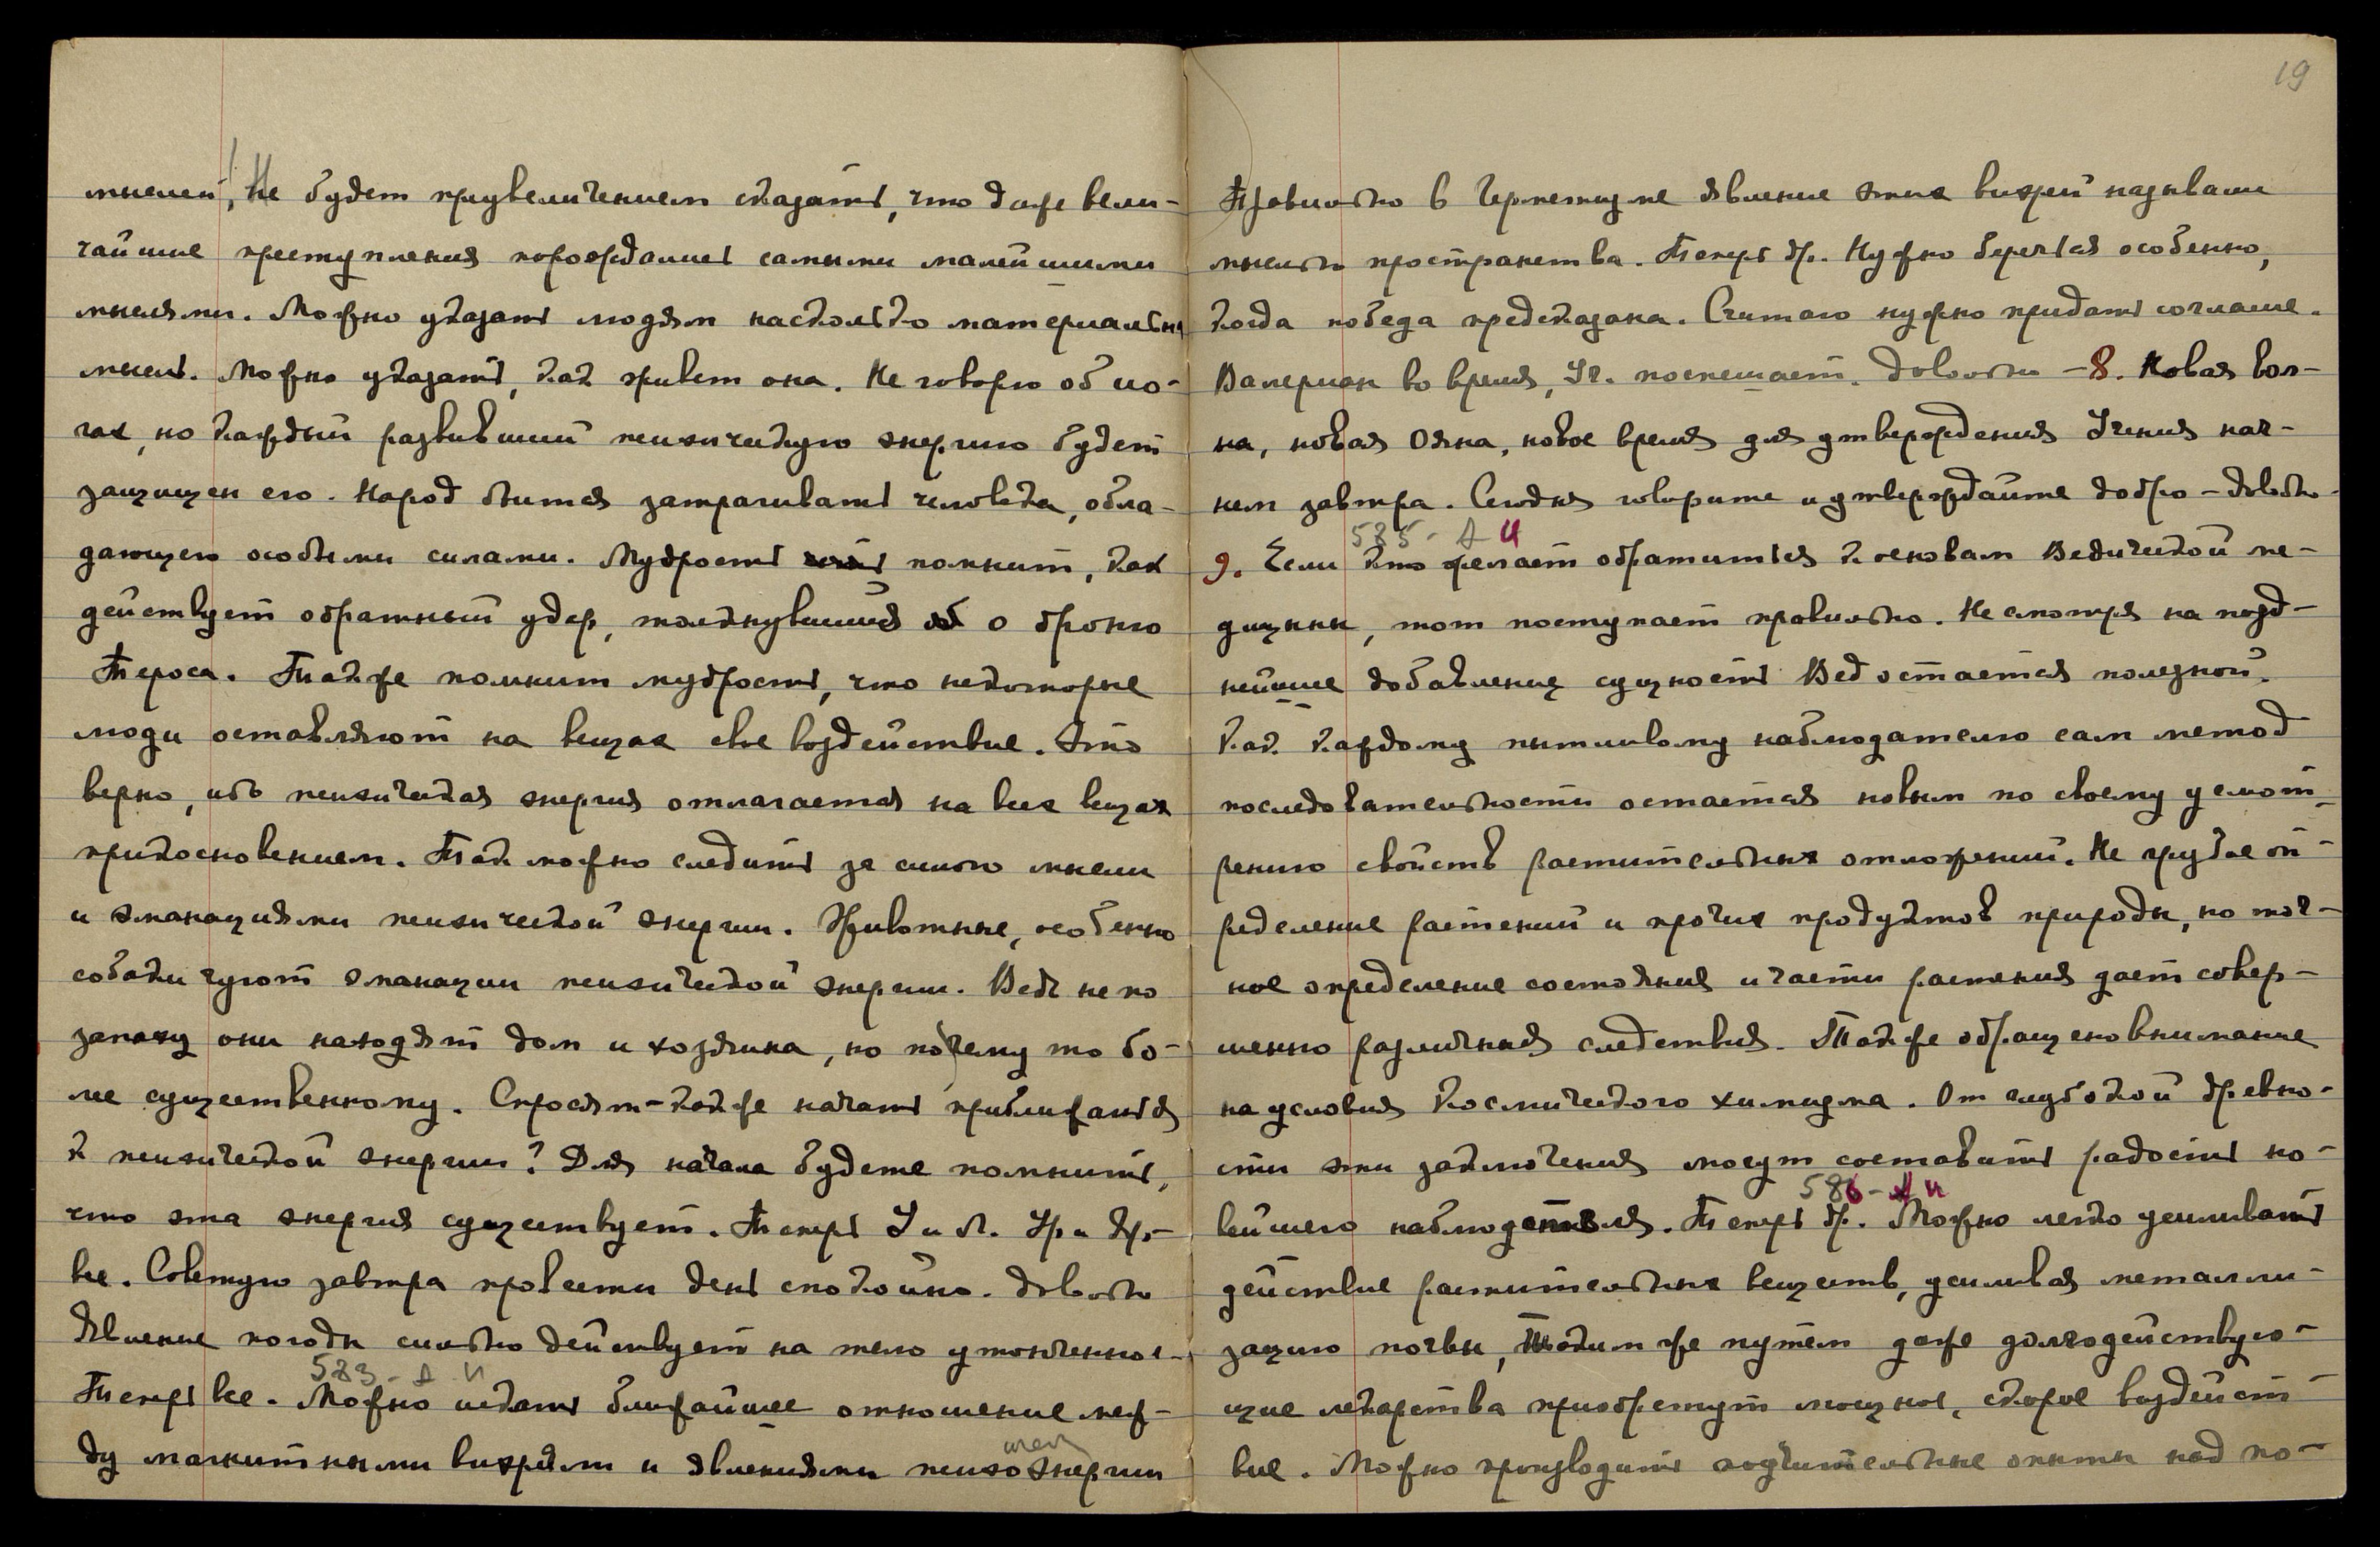 мыслей, Не будет преувеличением сказать, что даже вели-
чайшие преступления порождались самыми малейшими
мыслями. Можно указать людям насколько материальна
мысль. Можно указать, как живет она. Не говорю об ио-
гах, но каждый развивший психическую энергию будет
защищен ею. Народ боится затрагивать человека, обла-
дающего особыми силами. Мудрость помнит, как
действует обратный удар, толкнувшийся о броню
Героса. Также помнит мудрость, что некоторые
люди оставляют на вещах свое воздействие. Это
верно, ибо психическая энергия отлагается на всех вещах
прикосновением. Так можно следить за силою мысли
и эманациями психической энергии. Животные, особенно
собаки чуют эманации психической энергии. Ведь не по
запаху они находят дом и хозяина, но по чему то бо-
лее существенному. Спросят-как же начать приближаться
к психической энергии? Для начала будете помнить,
что эта энергия существует. Теперь У и Л. Ур и Яр.-
все. Советую завтра провести день спокойно. Довольно
Явление погоды сильно действует на тело утонченное-
583 - А И
Теперь все. Можно искать ближайшее отношение меж-
ду магнитными вихрями и явлениями психоэнергии
19
Правильно в Герметизме явление этих вихрей называли
мыслью пространства. Теперь др. Нужно беречься особенно,
когда победа предсказана. Считаю нужно придать соглаше.
Валериан во время, Уч. поспешает. Довольно - 8. Новая вол-
на, новая Ояна, новое время для утверждения Учения нач-
нем завтра. Сегодня говорите и утверждайте добро - довольно-
585 - А И
9. Если кто желает обратиться к основам Ведической ме-
дицины, тот поступает правильно. Несмотря на позд-
нейшие добавления сущность Вед остается полезной.
Как каждому пытливому наблюдателю сам метод
последовательности остается новым по своему усмот-
рению свойств растительных отложений. Не грубое оп-
ределение растений и прочих продуктов природы, но точ-
ное определение состояния и части растения дает совер-
шенно различныя следствия. Также обращено внимание
на условия Космического химизма. От глубокой древно-
сти эти заключения могут составить радость но-
586 - А И
вейшего наблюдателя. Теперь др. Можно легко усиливать
действие растительных веществ, усиливая металли-
зацию почвы, Таким же путем даже долгодействую-
щие лекарства приобретут мощное, скорое воздейст-
вие. Можно производить поучительные опыты над по-